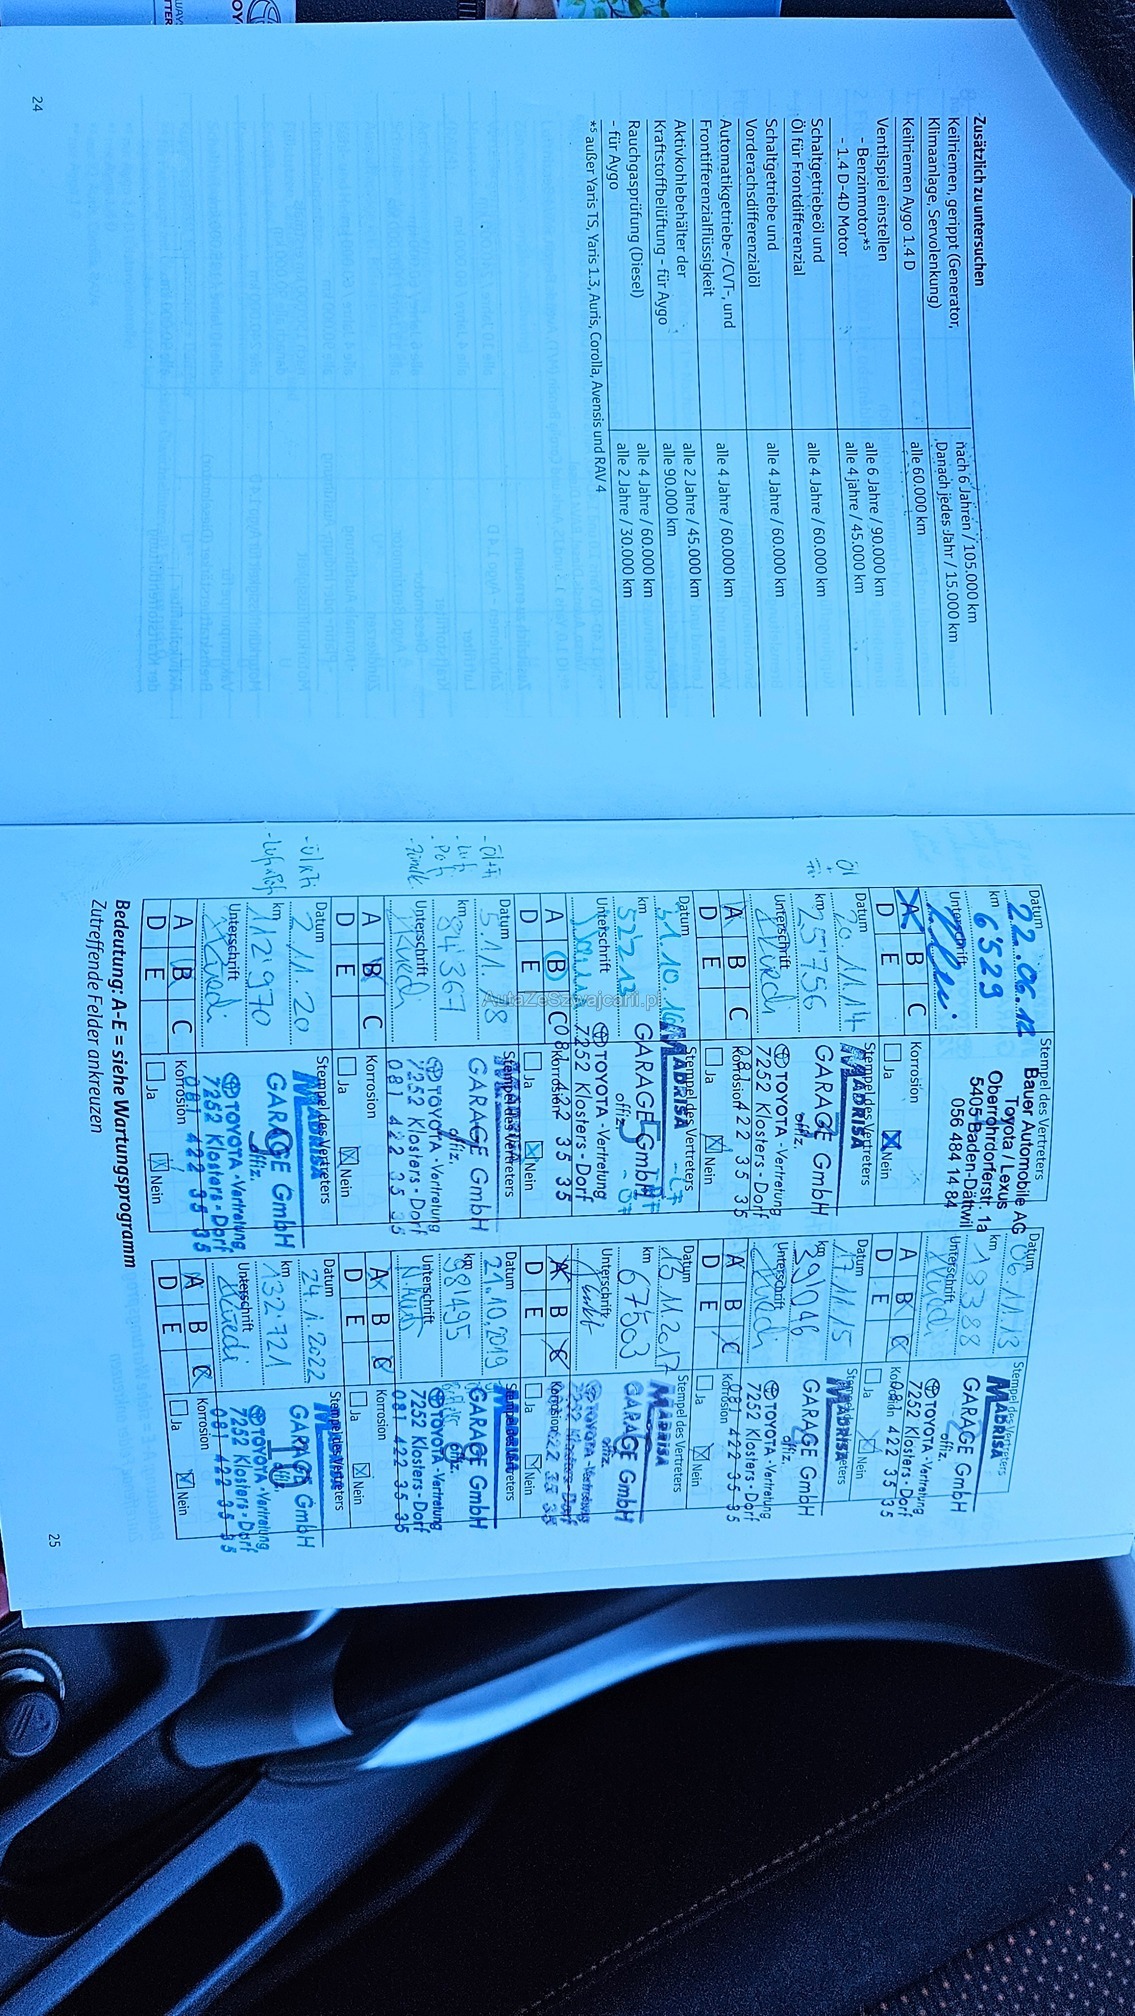 Zusätzlich zu untersuchen
Keilriemen, gerippt (Generator, nach 6 Jahren / 105.000 km
Klimaanlage, Servolenkung) Danach jedes Jahr / 15.000 km
Keilriemen Aygo 1.4 D alle 60.000 km
Ventilspiel einstellen
- Benzinmotor*⁵ alle 6 Jahre / 90.000 km
- 1.4 D-4D Motor alle 4 jahre / 45.000 km
Schaltgetriebeöl und alle 4 Jahre / 60.000 km
Öl für Frontdifferenzial
Schaltgetriebe und alle 4 Jahre / 60.000 km
Vorderachsdifferenzialöl
Automatikgetriebe-/CVT-, und alle 4 Jahre / 60.000 km
Frontdifferenzialflüssigkeit
Aktivkohlebehälter der alle 2 Jahre / 45.000 km
Kraftstoffbelüftung – für Aygo alle 90.000 km
Rauchgasprüfung (Diesel) alle 4 Jahre / 60.000 km
- für Aygo alle 2 Jahre / 30.000 km
*⁵ außer Yaris TS, Yaris 1.3, Auris, Corolla, Avensis und RAV 4
24
Datum 22.06.12 Stempel des Vertreters
km 6'529
Unterschrift
Bauer Automobile AG
Toyota / Lexus
Oberrohrdorferstr. 1a
5405 Baden-Dättwil
056 484 14 84
A B C Korrosion
D E Ja Nein
Datum 06.11.13 Stempel des Vertreters
km 13388
Unterschrift
MADRISA
GARAGE GmbH
offiz.
TOYOTA-Vertretung
7252 Klosters-Dorf
081 422 35 35
A B C Korrosion
D E Ja Nein
Öl
Datum 20.11.14 Stempel des Vertreters
km 25'756
Unterschrift
MADRISA
GARAGE GmbH
offiz.
TOYOTA-Vertretung
7252 Klosters-Dorf
081 422 35 35
A B C Korrosion
D E Ja Nein
Datum 17.11.15 Stempel des Vertreters
km 39'046
Unterschrift
MADRISA
GARAGE GmbH
offiz.
TOYOTA-Vertretung
7252 Klosters-Dorf
081 422 35 35
A B C Korrosion
D E Ja Nein
Datum 31.10.16 Stempel des Vertreters
km 52213
Unterschrift
MADRISA
GARAGE GmbH
offiz.
TOYOTA-Vertretung
7252 Klosters-Dorf
081 422 35 35
A B C Korrosion
D E Ja Nein
Datum 15.11.2017 Stempel des Vertreters
km 67503
Unterschrift
MADRISA
GARAGE GmbH
offiz.
TOYOTA-Vertretung
7252 Klosters-Dorf
A B C Korrosion
D E Ja Nein
Datum 5.11.18 Stempel des Vertreters
km 84'367
Unterschrift
GARAGE GmbH
offiz.
TOYOTA-Vertretung
7252 Klosters-Dorf
081 422 35 35
A B C Korrosion
D E Ja Nein
Datum 21.10.2019 Stempel des Vertreters
km 98'495
Unterschrift
GARAGE GmbH
offiz.
TOYOTA-Vertretung
7252 Klosters-Dorf
081 422 35 35
A B C Korrosion
D E Ja Nein
Datum 2.11.20 Stempel des Vertreters
km 112'970
Unterschrift
MADRISA
GARAGE GmbH
offiz.
TOYOTA-Vertretung
7252 Klosters-Dorf
081 422 35 35
A B C Korrosion
D E Ja Nein
Datum 24.1.2022 Stempel des Vertreters
km 132'721
Unterschrift
GARAGE GmbH
offiz.
TOYOTA-Vertretung
7252 Klosters-Dorf
081 422 35 35
A B C Korrosion
D E Ja Nein
Bedeutung: A-E = siehe Wartungsprogramm
Zutreffende Felder ankreuzen
25
AutaZeSzwajcarii.pl